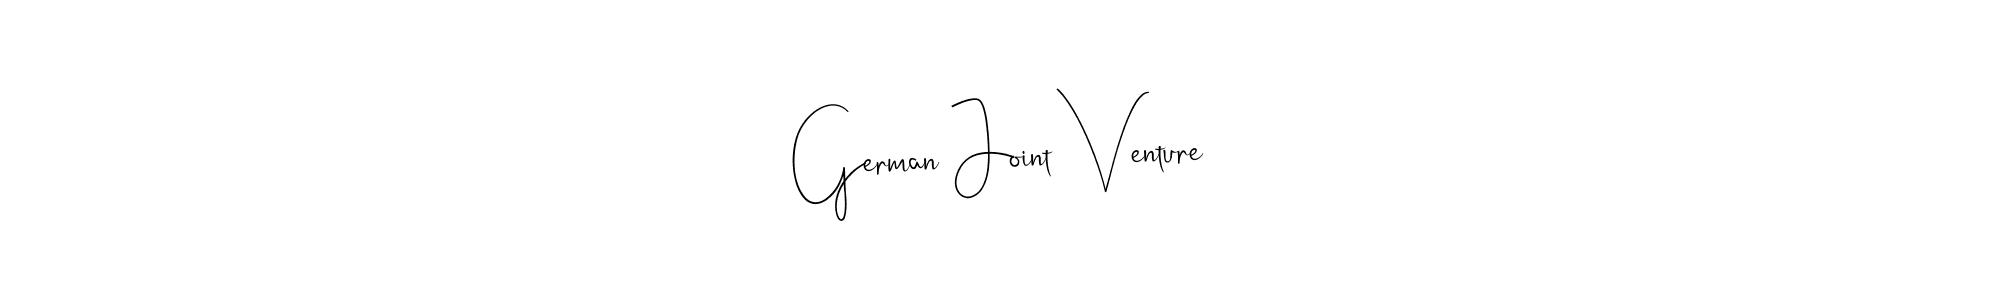 German Joint Venture